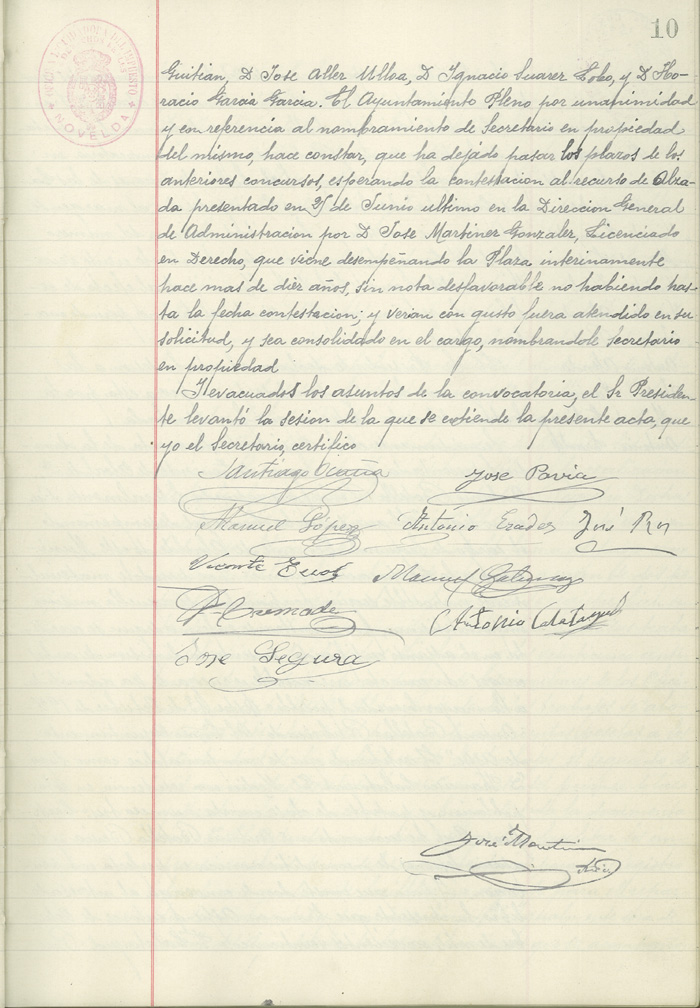 10
NOVELDA
Guitian, D Jose Aller Ulloa, D Ignacio Suarez Lobo, y D Ho-
racio Garcia Garcia. El Ayuntamiento Pleno por unanimidad
y con referencia al nombramiento de Secretario en propiedad
del mismo, hace constar, que ha dejado pasar los plazos de los
anteriores concursos, esperando la contestacion al recurso de Alza-
da presentado en 25 de Junio ultimo en la Direccion General
de Administracion por D Jose Martinez Gonzalez, Licenciado
en Derecho, que viene desempeñando la Plaza interinamente
hace mas de diez años, sin nota desfavorable no habiendo has-
ta la fecha contestacion; y verian con gusto fuera atendido en su
solicitud, y sea consolidado en el cargo, nombrandole Secretario
en propiedad
Y evacuados los asuntos de la convocatoria, el Sr Presiden-
te levantó la sesion de la que se extiende la presente acta, que
yo el Secretario, certifico
Santiago Jose Pavia
Manuel López Antonio José
Vicente Manuel
Cremades Antonio
Jose Segura
José Martinez